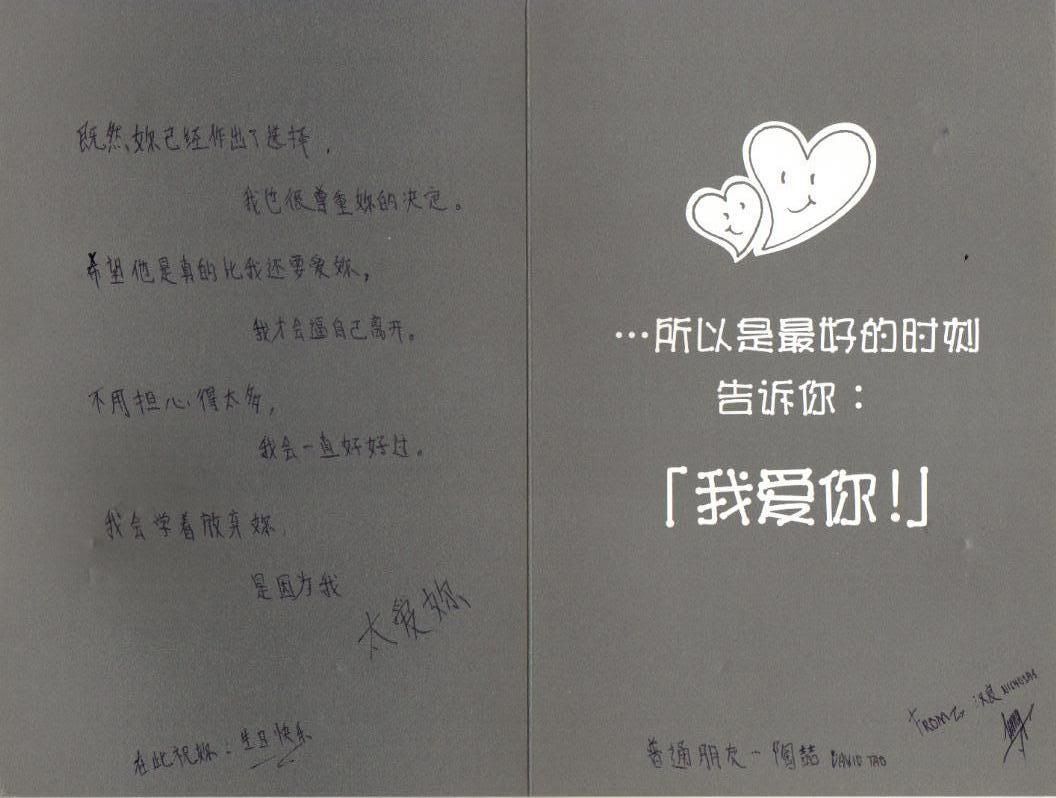 既然妳已经作出了选择,
我也很尊重妳的决定。
希望他是真的比我还要爱妳,
我才会逼自己离开。
不用担心得太多,
我会一直好好过。
我会学着放弃妳
是因为我
太爱妳
在此祝妳：生日快乐
…所以是最好的时刻
告诉你：
「我爱你！」
FROM NICHOLAS
普通朋友-陶喆 DAVID TAO